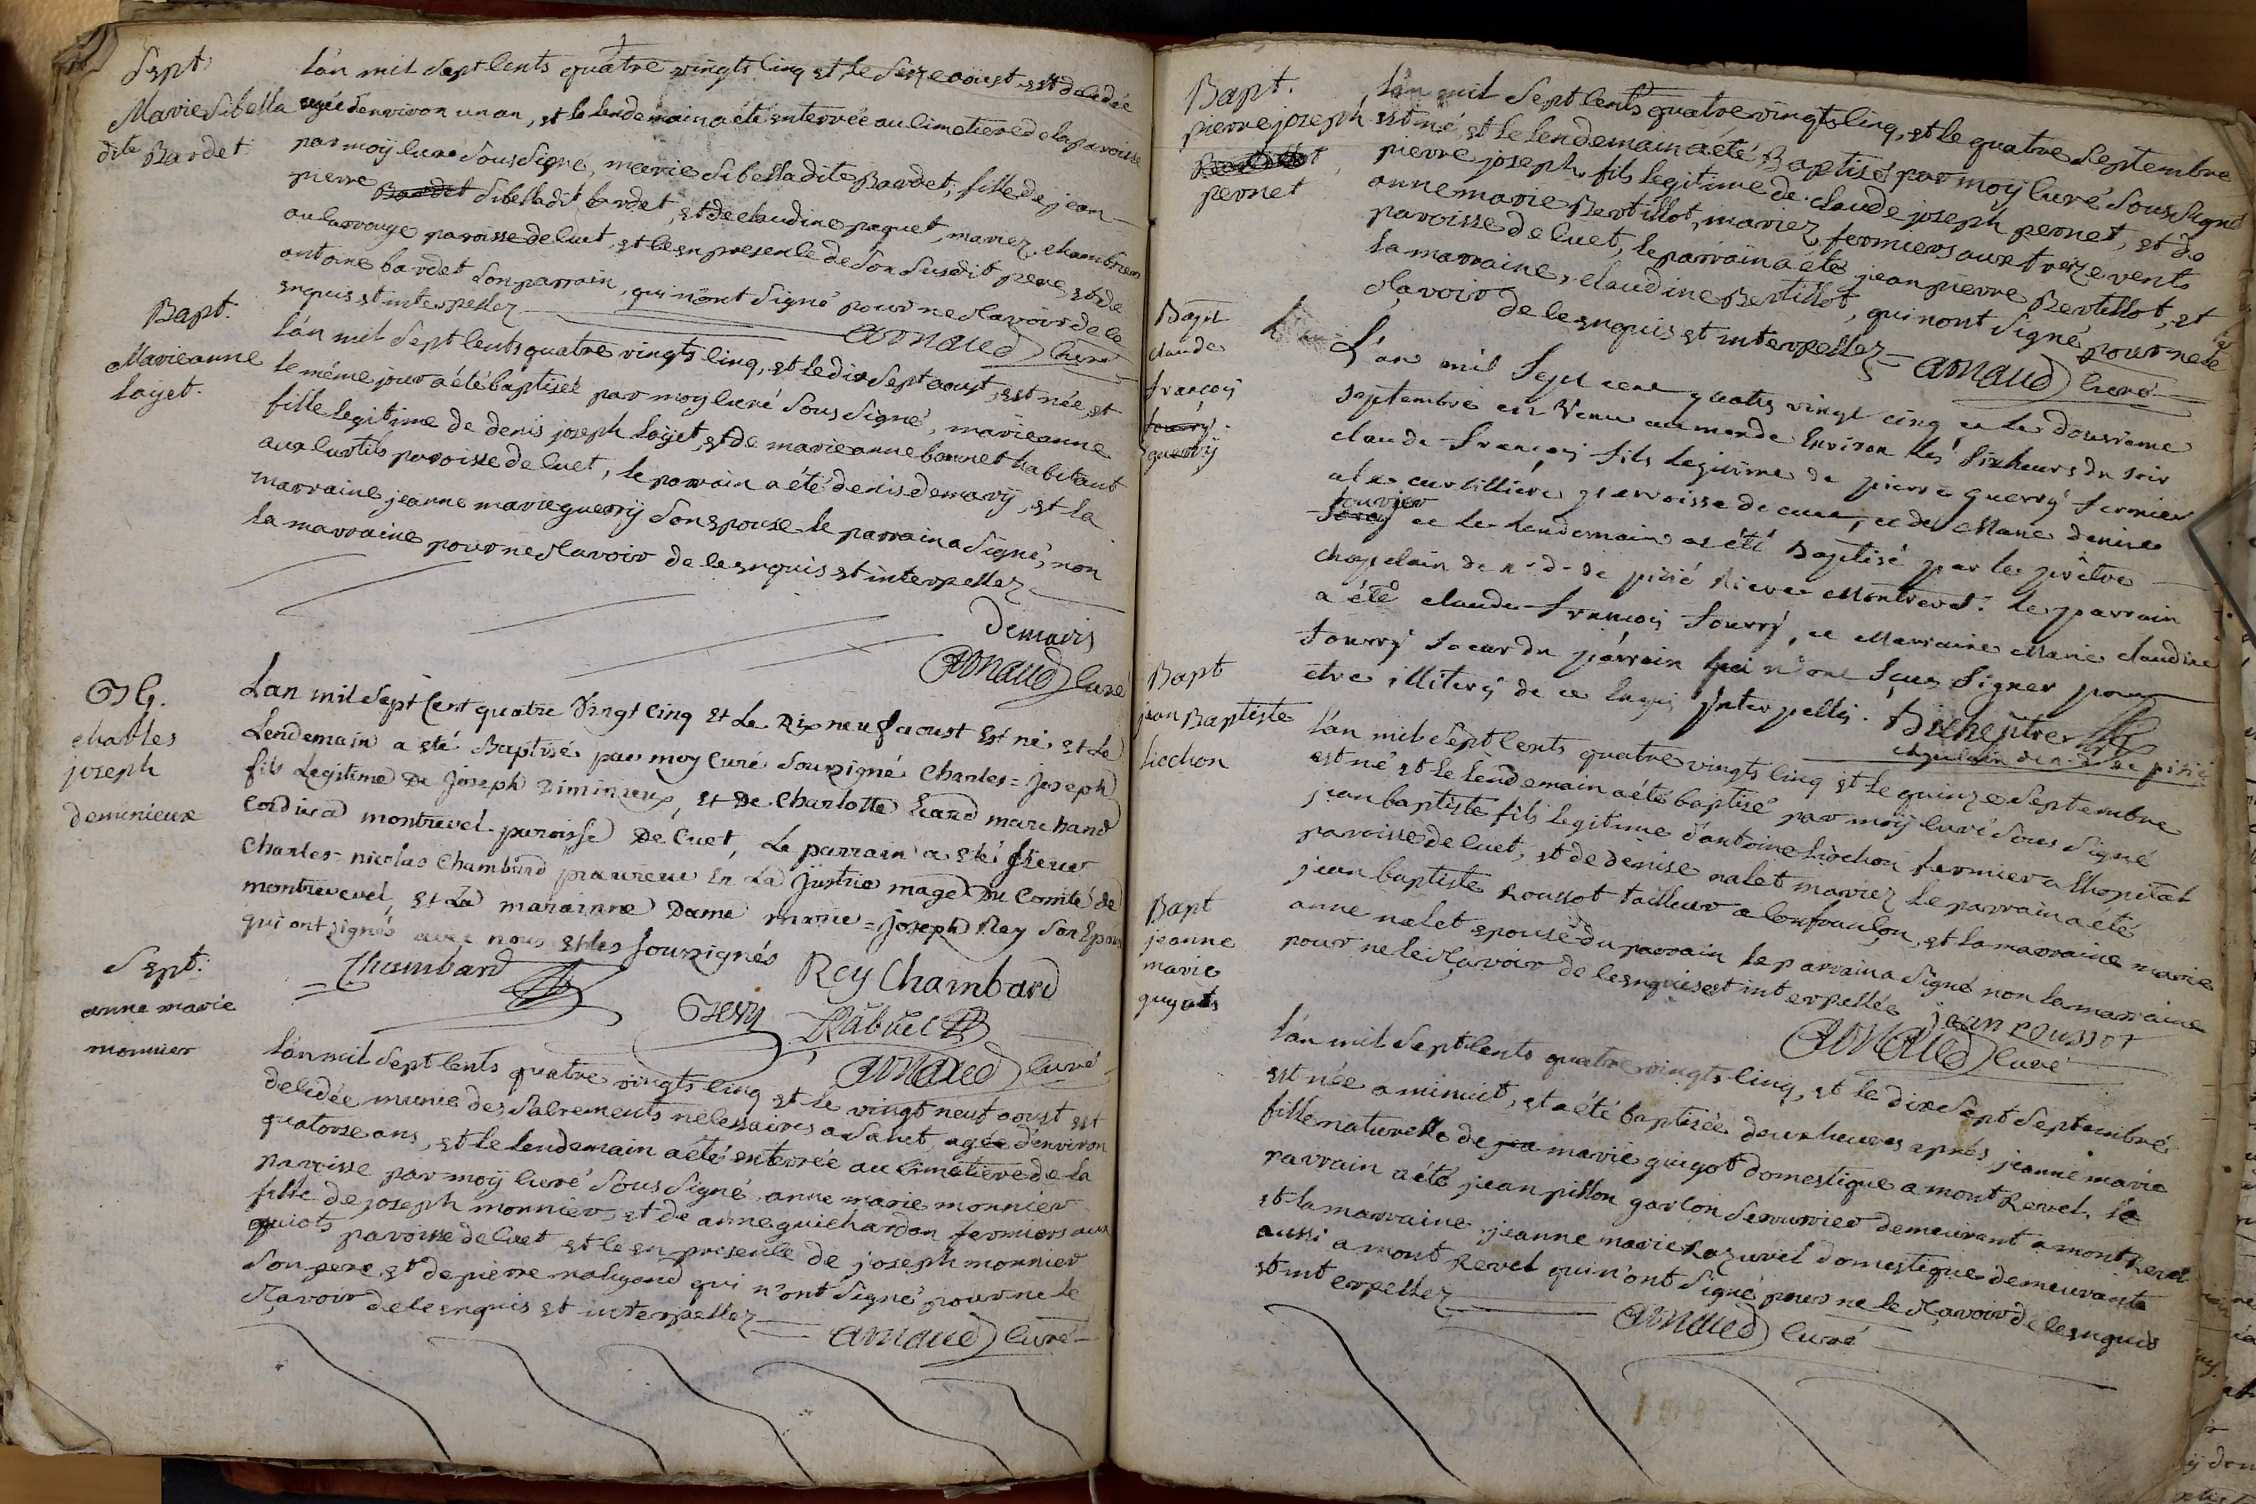 Sept.
Marie Sibella
dite Bardet
L'an mil Sept Cents quatre vingts Cinq et le Seize aoust est decedée
agée d'environ un an, et le lendemain a été enterrée au Cimetiere de la paroisse
par moÿ Curé Sous Signé, marie Sibella dite Bardet, fille de jean
pierre Bardet Sibella dit bardet, et de claudine paquet, mariez,
paroisse de Cuet, et ce en presence de Son Susdit pere, et de
antoine bardet Son parrain, qui n'ont Signé pour ne Sçavoir de ce
enquis et interpellez
arnaud Curé
Bapt.
Marie anne
Loÿet.
L'an mil Sept Cents quatre vingts Cinq, et le dix Sept aoust, est née, et
le même jour a été baptisée par moy Curé Sous Signé, marie anne
fille legitime de denis joseph Loÿet, et de marie anne bonnet habitant
aux Curtils paroisse de Cuet, le parrain a été denis demarÿ, et la
marraine jeanne marie guerrÿ Son epouse le parrain a Signé, non
la marraine pour ne Sçavoir de ce enquis et interpellez
Demaris
arnaud Curé
charles
joseph
deminieux
L'an mil Sept Cent quatre Vingt Cinq et Le Dix neuf aoust Est né, et Le
Lendemain a eté Baptisé par moy Curé Souzigné Charles = Joseph
fils Legitime De Joseph Diminieux, Et De Charlotte Ecard marchand
Cordier a montrevel paroisse De Cuet, Le parrain a eté Sieur
Charles = nicolas Chambard procureur En La Justice mage Du Comté de
montrevevel, Et La marainne Dame marie = Joseph Rey Son Epouse
qui ont zignés avec nous et les Souzignés
Chambard
Rey Chambard
Rabuel
arnaud Curé
Sept.
anne marie
monnier
L'an mil Sept Cents quatre vingts Cinq et le vingt neuf aoust est
decedée munie des Sacrements necessaires a Salut, agée d'environ
quatorse ans, et le lendemain a été enterrée au Cimetiere de la
paroisse par moÿ Curé Sous Signé anne marie monnier
fille de joseph monnier et de anne guichardon fermiers aux
guiots paroisse de Cuet et ce en presence de joseph monnier
Son pere, et de pierre maligand qui n'ont Signé pour ne le
Sçavoir de ce enquis et interpellez
arnaud Curé
Bapt.
pierre joseph
Bertillot
pernet
L'an mil Sept Cents quatre vingts Cinq, et le quatre Septembre
est né, et le lendemain a été Baptisé par moÿ Curé Sous Signé
pierre joseph, fils legitime de claude joseph pernet, et de
anne marie Bertillot, mariez, fermiers aux treize vents
paroisse de Cuet, le parrain a été jean pierre Bertillot, et
la marraine, claudine Bertillot, qui n'ont Signé pour ne le
Sçavoir de ce enquis et interpellez
arnaud Curé
Bapt
claude
françois
fourrÿ
guerrÿ
L'an mil Sept cent quatre vingt cinq et le dousieme
septembre est Venu au monde Environ les Six heurs du soir
claude françois fils legitime de pierre guerrÿ fermier
a la curtilliere parroisse de cuet, et de Marie denise
fourrÿ et le lendemain a été Baptisé par le prêtre
chapelain de n. d. de pitié Riere Montrevel. le parrain
a été claude françois fourrÿ, et Marraine Marie claudine
fourrÿ soeur du parrain qui n'ont Sçus Signer pour
etre illiterés de ce Enquis Interpellés.
chapelain de n. d. de pitié
Bapt
jean Baptiste
Liochon
L'an mil Sept Cents quatre vingts Cinq et le quinze Septembre
est né et le lendemain a été baptisé par moÿ Curé Sous Signé
jean baptiste fils legitime d'antoine Liochon fermier a lhopital
paroisse de Cuet, et de denise nalet mariez le parrain a été
jean baptiste Roussot tailleur a Confrançon, et la marraine marie
anne nalet epouse du parrain le parrain a Signé non la marraine
pour ne le Sçavoir de ce enquise et interpellée
jean roussot
arnaud Curé
Bapt
jeanne
marie
guyots
L'an mil Sept Cents quatre vingts Cinq, et le dix Sept Septembre
est née a minuit, et a été baptisée deux heures aprés jeanne marie
fille naturelle de marie guigot domestique a mont Revel, le
parrain a été jean pillon garcon Serrurier demeurant a mont Revel
et la marraine jeanne marie domestique demeurante
aussi a mont Revel qui n'ont Signé pour ne le Sçavoir de ce enquis
et interpellez
arnaud Curé